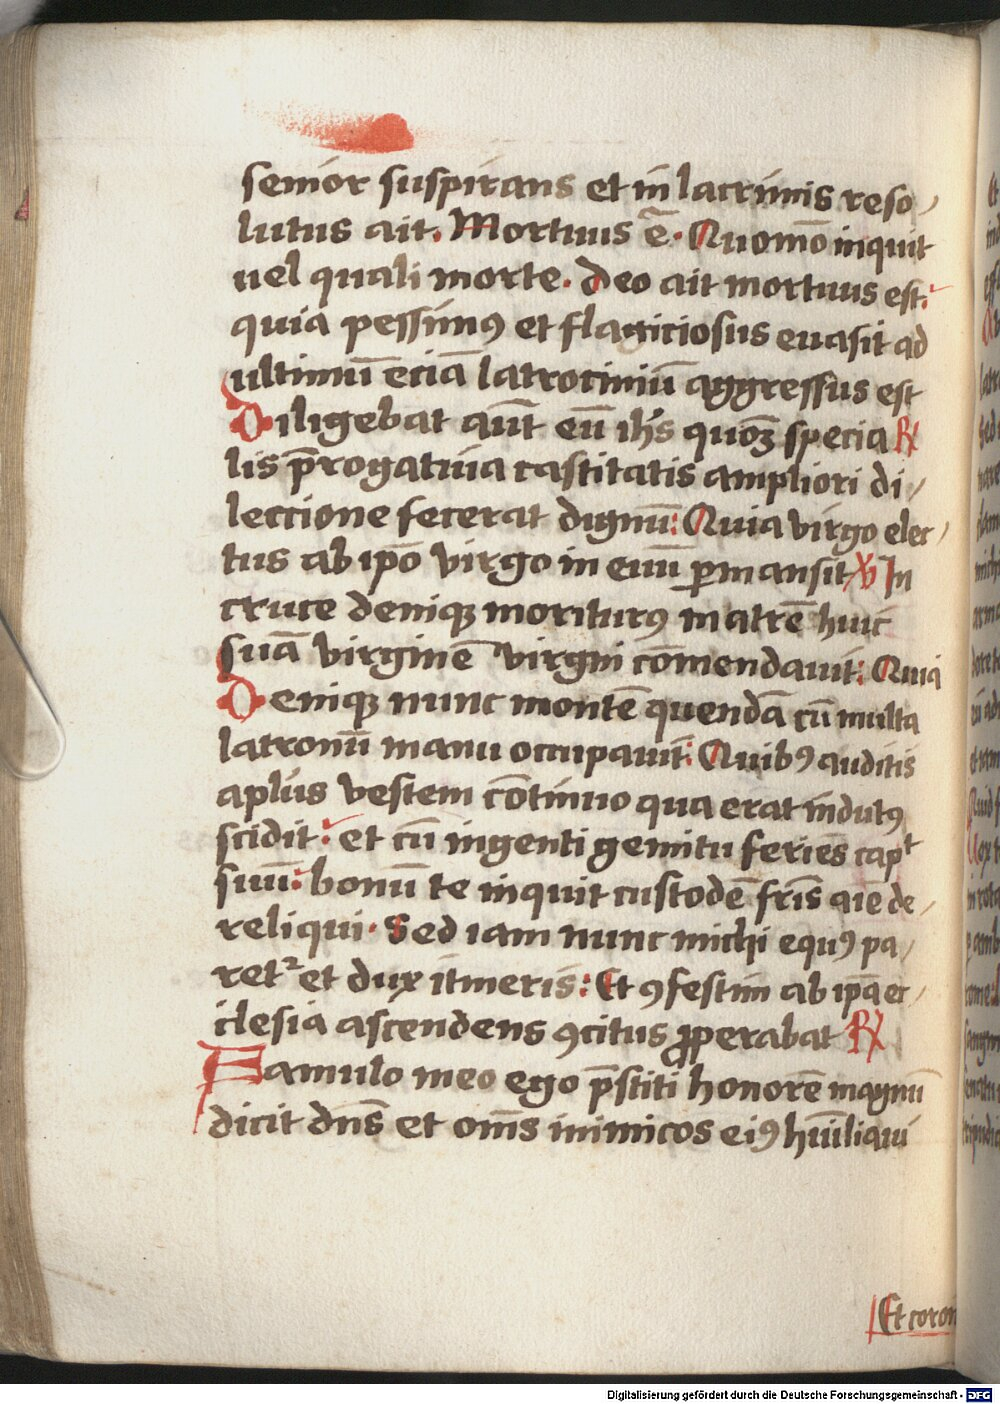 senior suspirans et in lacrimis reso/
lutus ait. Mortuus ē. Quomō inquit
uel quali morte. Deo ait mortuus est:
quia pessimꝰ et flagiciosus euasit ad
ultimū eciā latrociniū aggressus est
Diligebat aūt eū ihs̄ quoꝫ specia R/
lis p̄rogatiua castitatis ampliori di/
leccione fecerat dignū: Quia virgo elec/
tus ab ipō virgo in euū ꝑmansit V In
cruce deniqꝫ moriturꝰ matrē huic
suā virginē virgini cōmendauit: Quia
Deniqꝫ nunc montē quendā cū multa
latronū manu occupauit: Quibꝰ auditis
aplūs vestem cōtinuo qua erat indutꝰ
scidit: et cū ingenti gemitu feriēs capᵗ
suū: bonū te inquit custodē fr̄is aīe de/
reliqui. Sed iam nunc michi equꝰ pa/
retᷣ et dux itineris: Et ꝯfestim ab ip̄a ec/
clesia ascendens ꝯcitus ꝓperabat R/
Famulo meo ego p̄stiti honorē magnū
dicit dn̄s et om̄s inimicos eiꝰ hūiliaui
Et coron
Digitalisierung gefördert durch die Deutsche Forschungsgemeinschaft - DFG